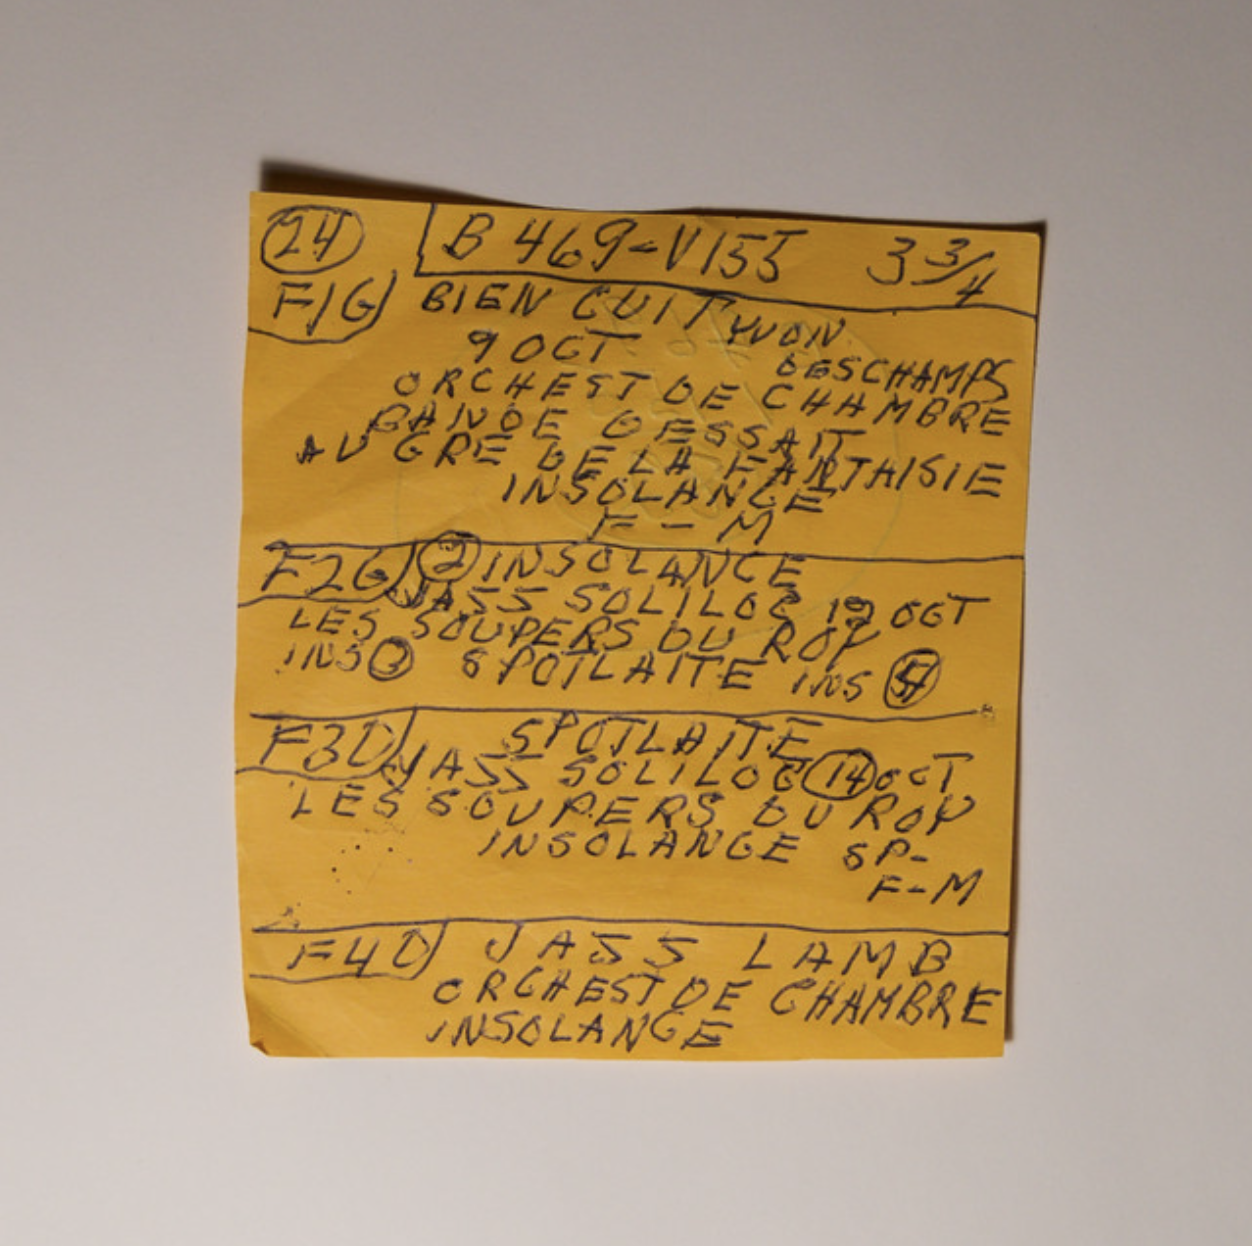 24 B 469-V155 3 3/4
F1G BIEN CUIT YVON
9 OCT DESCHAMPS
ORCHEST DE CHAMBRE
BANDE DESSAIT
AU GRE DE LA FANTAISIE
INSOLANCE
F-M
F2G 2 INSOLANCE
JASS SOLILOC 19 OCT
LES SOUPERS DU ROY
INS SPOTLAITE INS
F3D SPOTLAITE
JASS SOLILOC 14 OCT
LES SOUPERS DU ROY
INSOLANGE SP-
F-M
F4D JASS LAMB
ORCHEST DE CHAMBRE
INSOLANGE